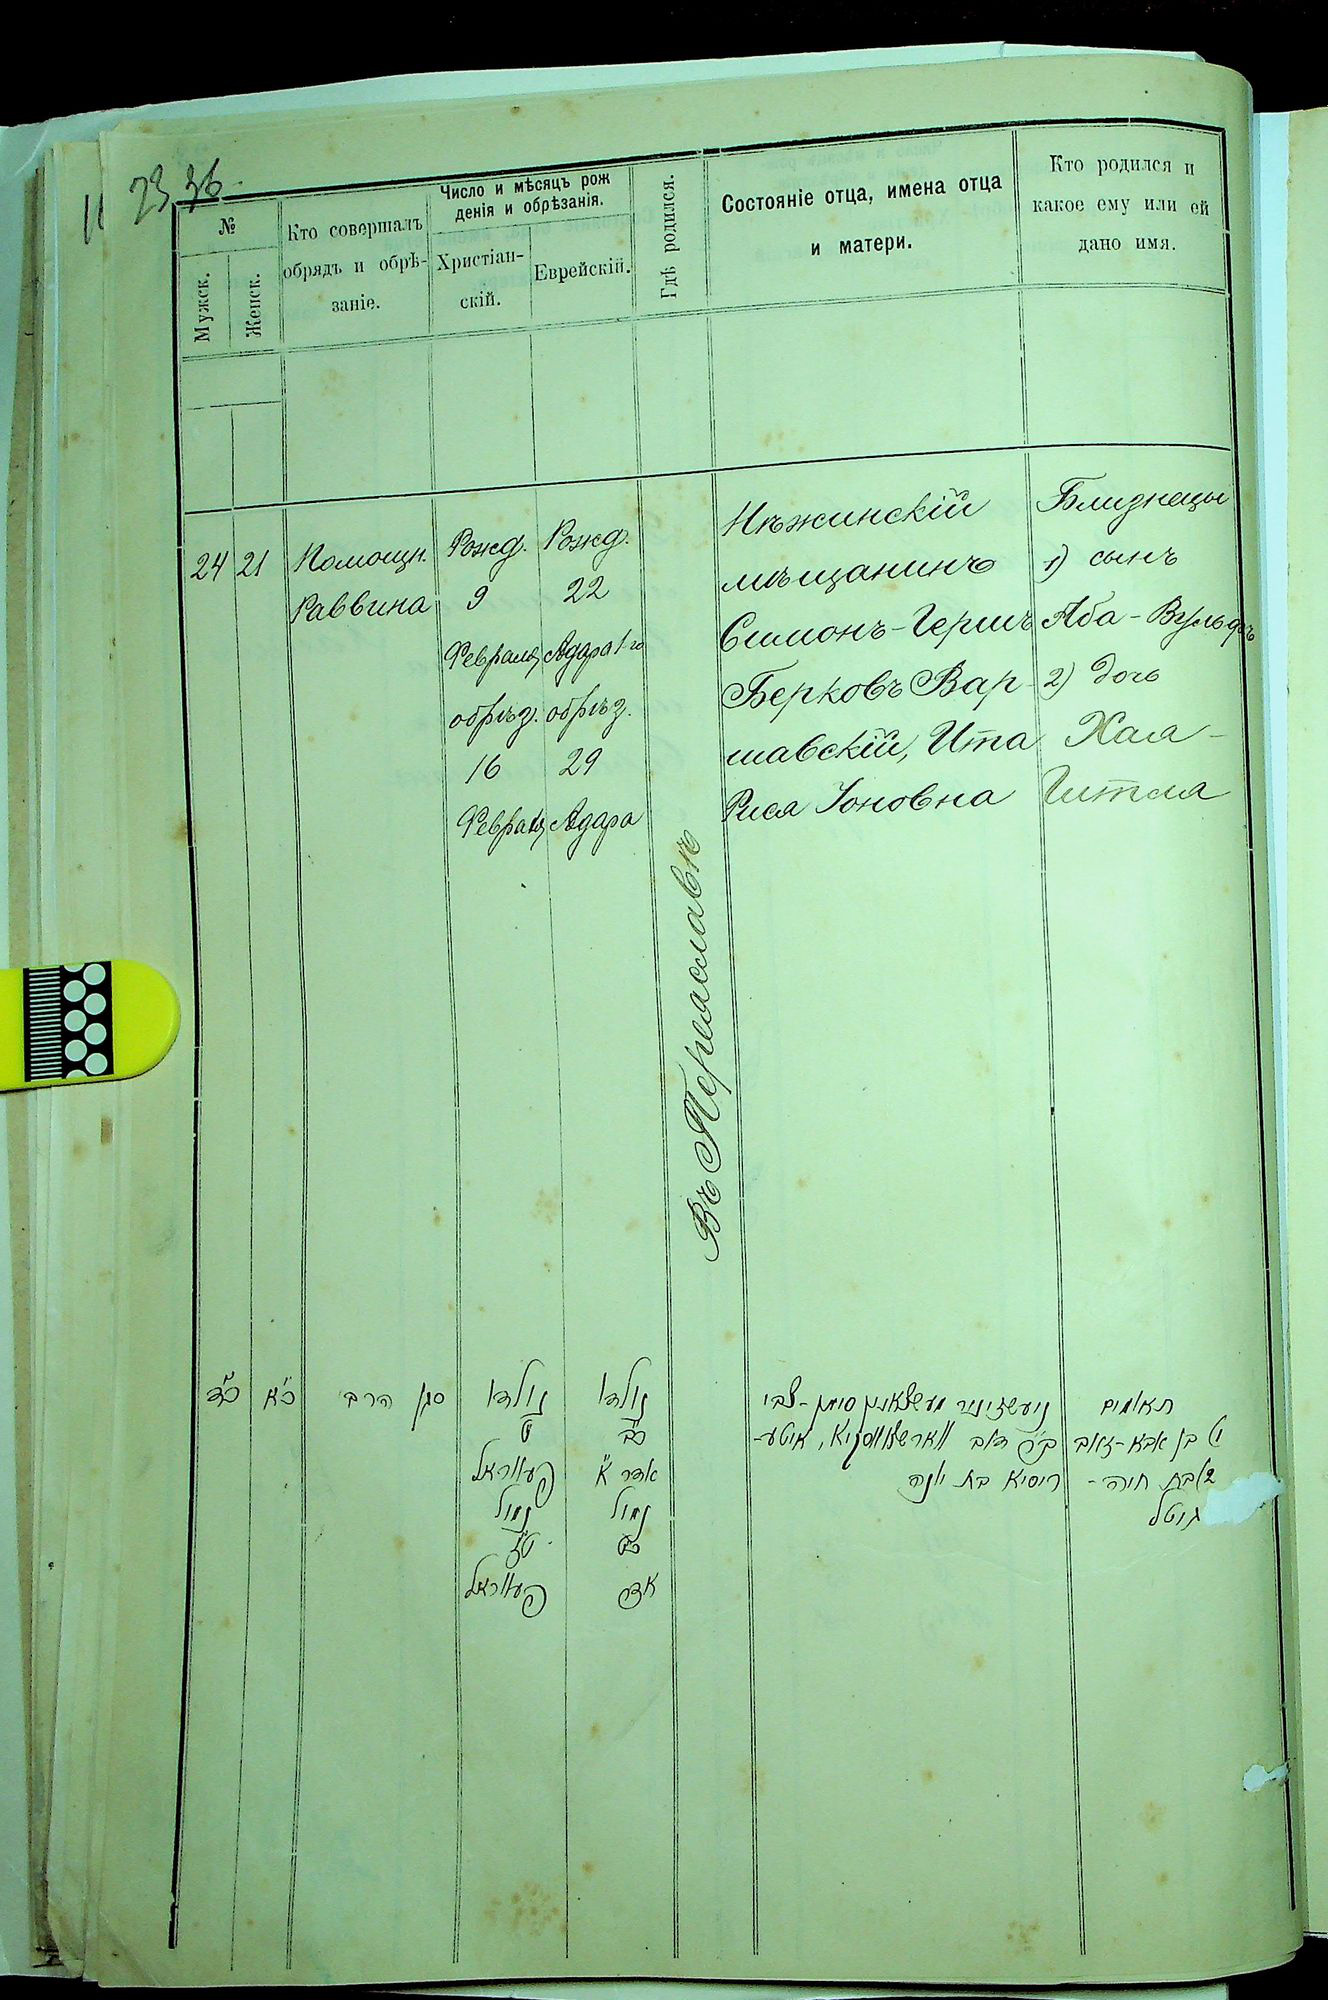 23 36
№
Мужск.
Женск.
Кто совершалъ
обрядъ и обрѣ-
заніе.
Число и мѣсяцъ рож
денія и обрѣзанія.
Христіан-
скій.
Еврейскій.
Гдѣ родился.
Состояніе отца, имена отца
и матери.
Кто родился и
какое ему или ей
дано имя.
24
21
Помощн.
Раввина
Рожд.
9
Февраля
обрѣз.
16
Февраля
Рожд.
22
Адара 1-го
обрѣз.
29
Адара
Въ Переяславѣ
Нѣжинскій
мѣщанинъ
Симонъ-Гершъ
Берковъ Вар
шавскій, Ита
Рися Іоновна
Близнецы
1) сынъ
Аба-Вульфъ
2) дочь
Хая-
Гитля
כ"ד
כ"א
סגן הרב
נולדו
ט
פעווראל
נמול
ט"ז
פעווראל
נולדו
כ"ב
אדר א'
נמול
כט
אדר
ניעשזינער מעשצאנין סימן-צבי
ב"ר דוב ווארשאווסקיא, איטע-
ריסיא בת יונה
תאומים
1) בן אבא-זאב
2) בת חיה-
גיטל